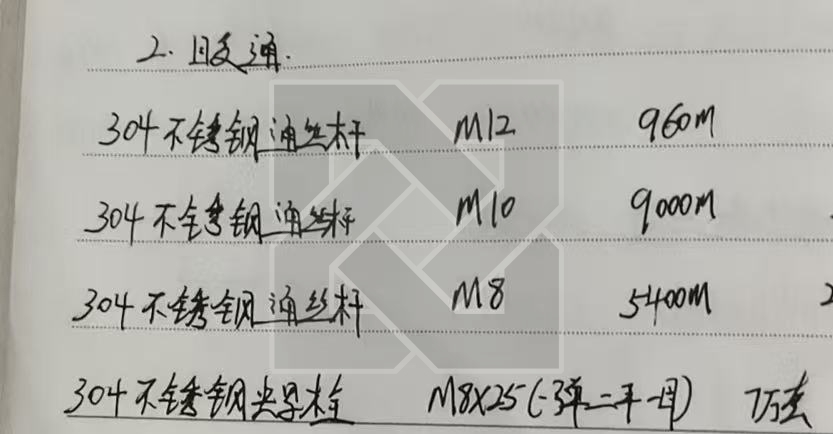 2. 日安通.
304不锈钢通丝杆 M12 960M
304不锈钢通丝杆 M10 9000M
304不锈钢通丝杆 M8 5400M
304不锈钢螺栓 M8X25(一弹二平一母) 7万套